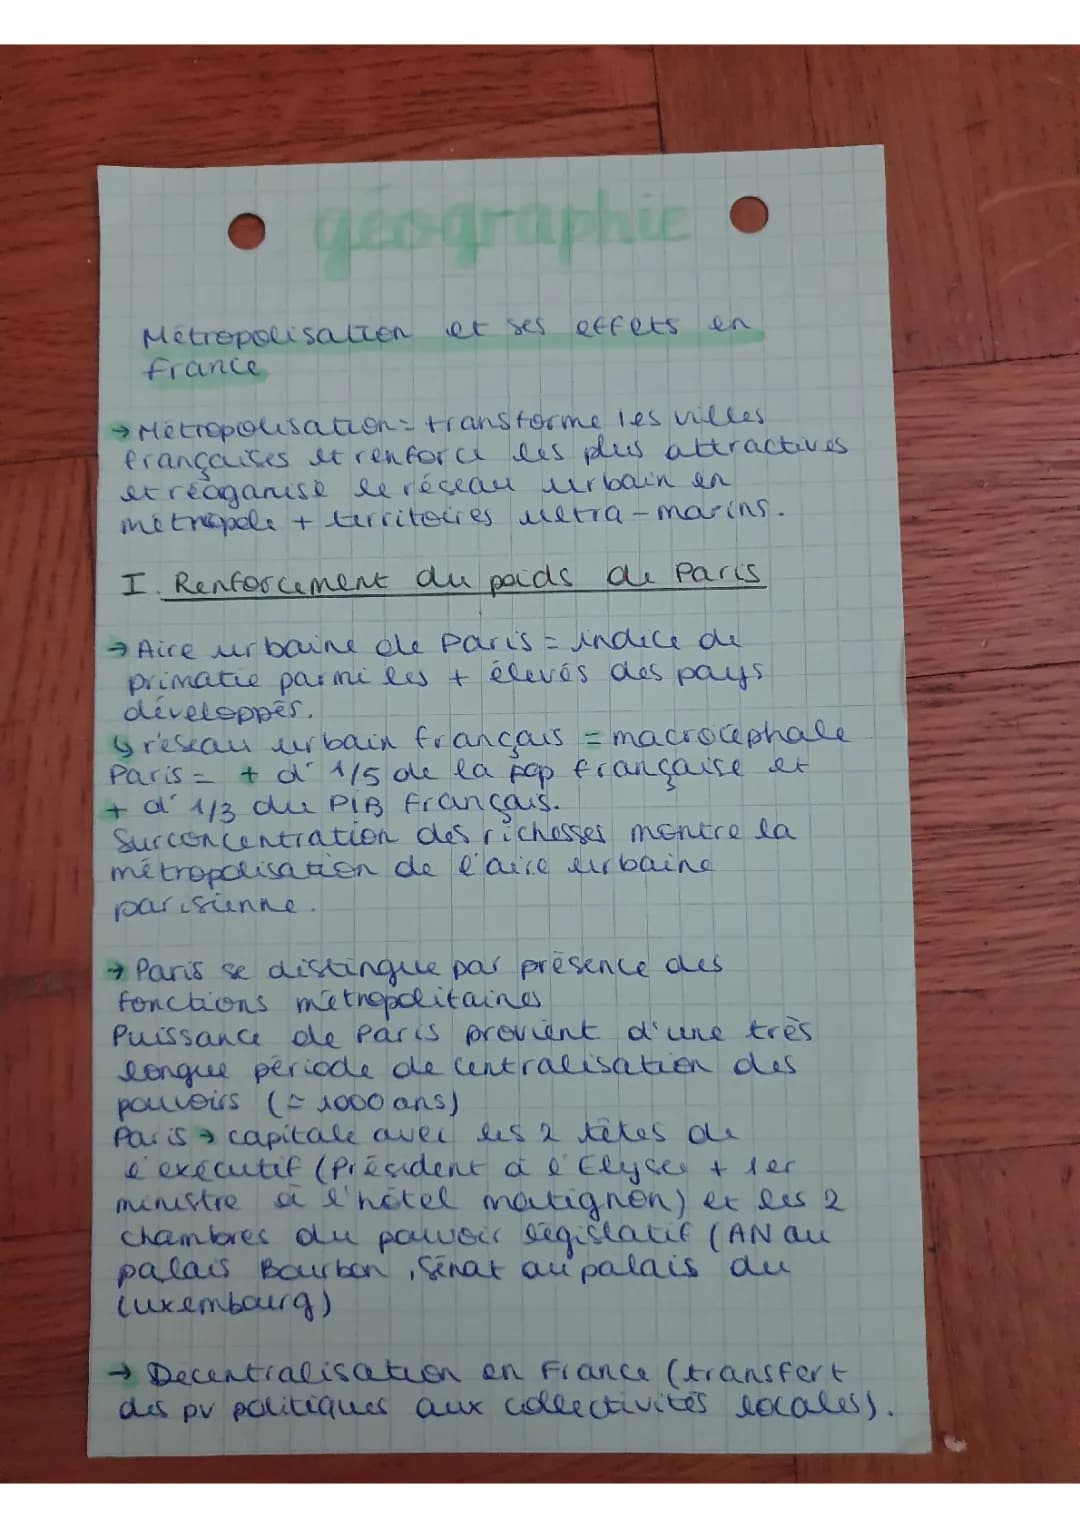 géographie
Métropolisation et ses effets en
France
→ Métropolisation = transforme les villes
françaises et renforce les plus attractives
et réoganise le réseau urbain en
métropole + territoires ultra-marins.
I. Renforcement du poids de Paris
→ Aire urbaine de Paris = indice de
primatie parmi les + élevés des pays
développés.
↳ réseau urbain français = macrocéphale
Paris = + d' 1/5 de la pop française et
+ d' 1/3 du PIB français.
Surconcentration des richesses montre la
métropolisation de l'aire urbaine
parisienne.
→ Paris se distingue par présence des
fonctions métropolitaines
Puissance de Paris provient d'une très
longue période de centralisation des
pouvoirs (= 1000 ans)
Paris → capitale avec les 2 têtes de
l'exécutif (Président à l'Elysée + 1er
ministre à l'hôtel matignon) et les 2
chambres du pouvoir législatif (AN au
palais Bourbon, Sénat au palais du
Luxembourg)
→ Decentralisation en France (transfert
des pv politiques aux collectivités locales).